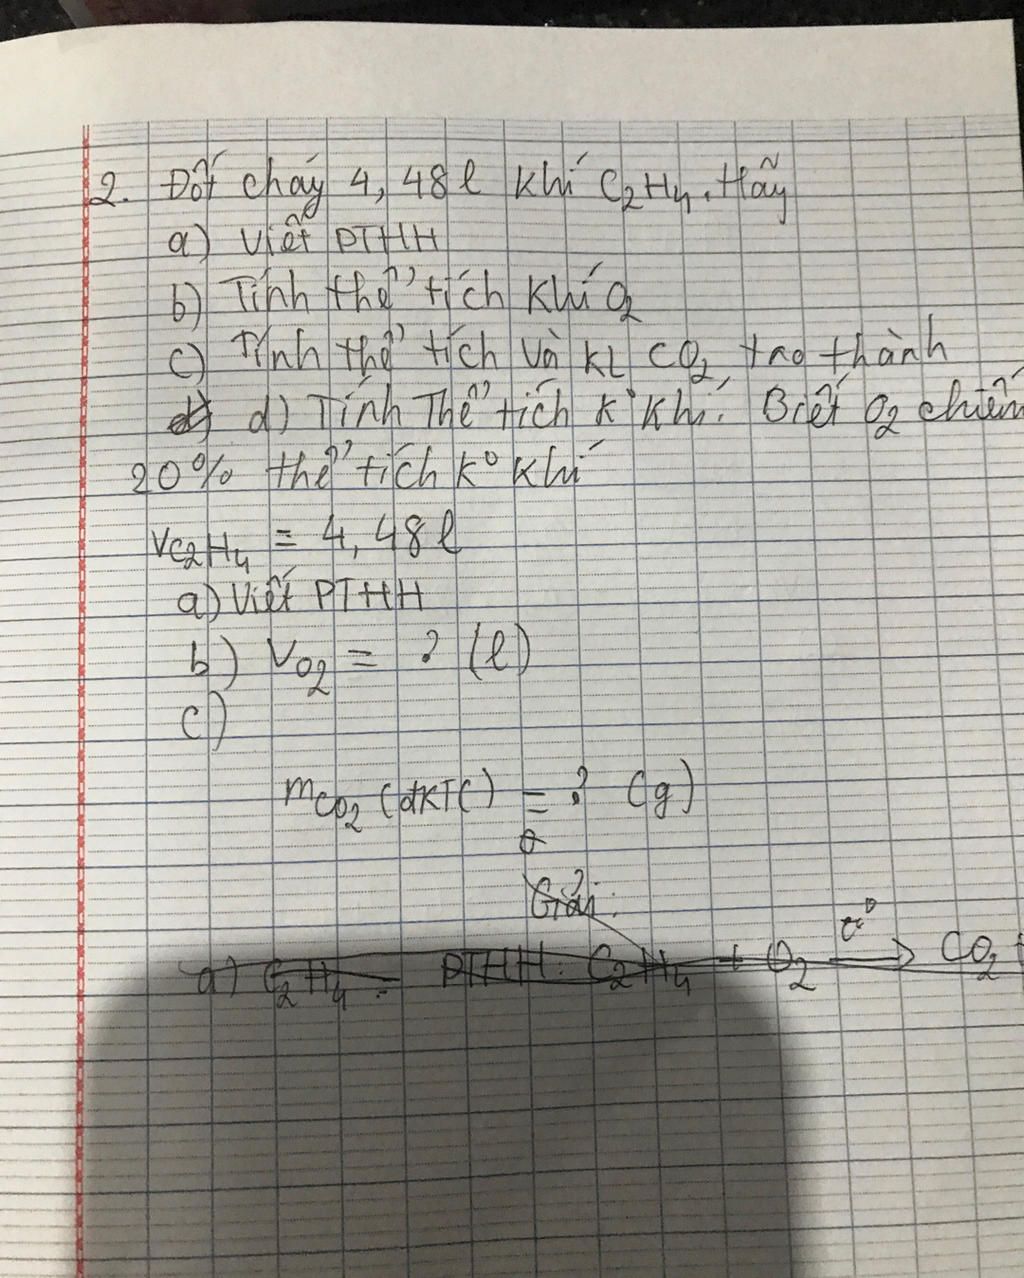 2. Đốt cháy 4,48l khí C₂H₄. Hãy
a) Viết PTHH
b) Tính thể tích khí O₂
c) Tính thể tích và KL CO₂ tạo thành
d) Tính Thể tích k° khí. Biết O₂ chiếm
20% thể tích k° khí
VC₂H₄ = 4,48l
a) Viết PTHH
b) VO₂ = ? (l)
c)
mCO₂ (đKTC) = ? (g)
Giải:
a) C₂H₄ = PTHH: C₂H₄ + O₂ →t° CO₂